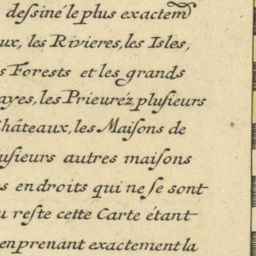 deſsiné le plus exactem̃
ux, les Rivieres, les Isles,
s Forests et les grands
ayes, les Prieuréz pluſieurs
hâteaux, les Maiſons de
uſieurs autres maiſons
s endroits qui ne ſe ſont
u reſte cette Carte étant
en prenant exactement la